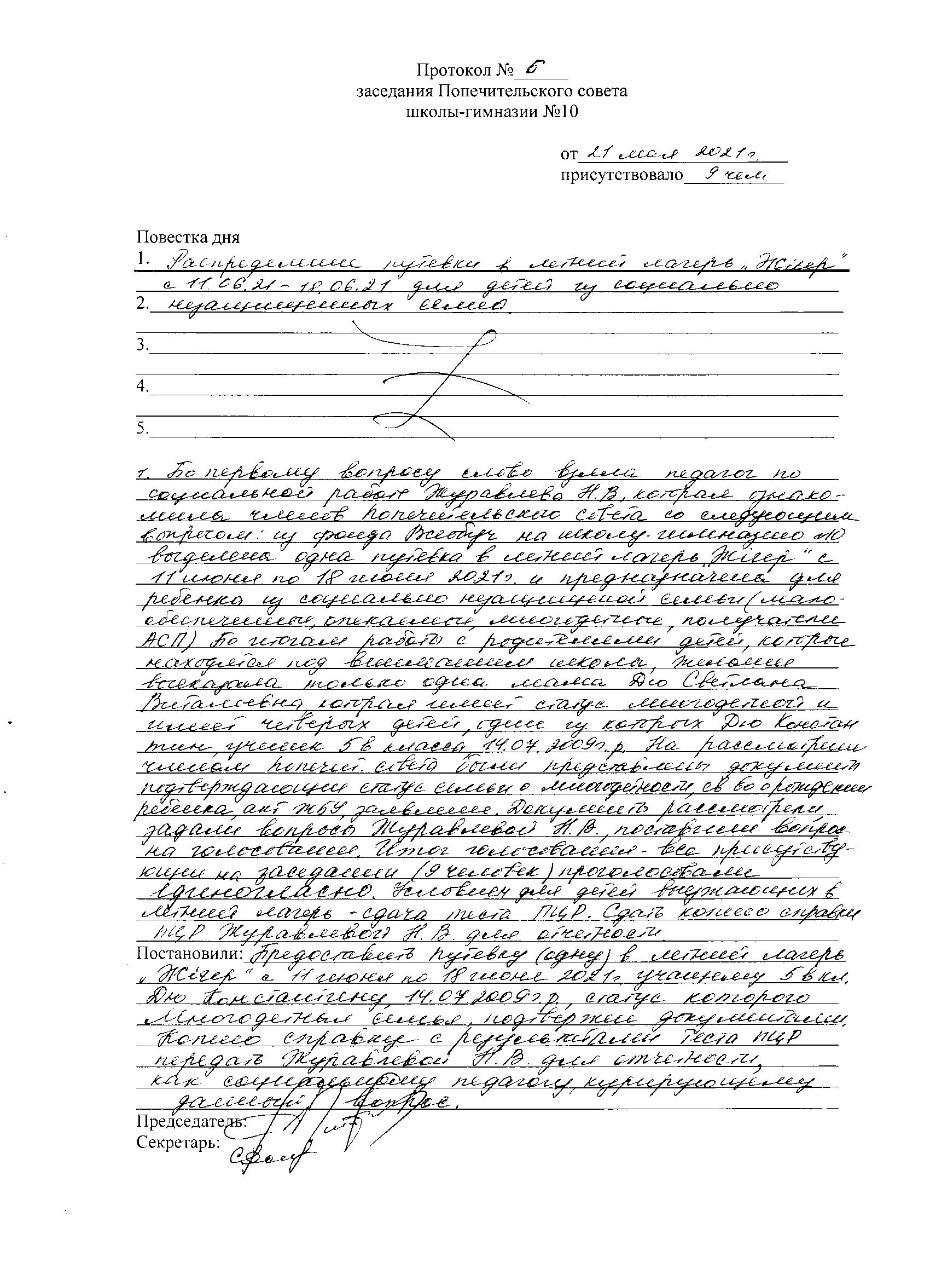 Протокол № 5
заседания Попечительского совета
школы-гимназии №10
от 21 мая 2021г.
присутствовало 9 чел
Повестка дня
1. Распределение путевки в летний лагерь „Жігер"
с 11.06.21-18.06.21 для детей из социально
2. незащищенных семей.
3.
4.
5.
1. По первому вопросу слово взяла педагог по
социальной работе Журавлева Н.В, которая ознако-
мила членов попечительского совета со следующим
вопросом: из фонда Всеобуч на школу-гимназию №10
выделена одна путевка в летний лагерь „Жігер" с
11 июня по 18 июня 2021г. и предназначена для
ребенка из социально незащищеной семьи (мало-
обеспеченные, опекаемые, многодетные, получатели
АСП) По итогам работы с родителями детей, которые
находятся под вниманием школы, желание
высказала только одна мама Дю Светлана
Витальевна, которая имеет статус многодетной и
имеет четверых детей, один из которых Дю Констан
тин, ученик 5в класса, 14.07.2009г.р. На рассмотрение
членам попечит. совета были представлены документы
подтверждающие статус семьи о многодетности, св во о рождении
ребенка, акт ЖБУ, заявление. Документы рассмотрели,
задали вопросы Журавлевой Н.В., поставили вопрос
на голосование. Итог голосования - все присутству-
ющие на заседании (9 человек) проголосовали
единогласно. Условием для детей выезжающих в
летний лагерь - сдача теста ПЦР. Сдать копию справки
ПЦР Журавлевой Н.В. для отчетности
Постановили: Предоставить путевку (одну) в летний лагерь
„Жігер" с 11 июня по 18 июня 2021г. учащемуся 5 в кл.
Дю Константину, 14.07.2009г.р, статус которого
Многодетная семья, подтвержден документами.
Копию справки с результатами теста ПЦР
передать Журавлевой Н.В. для отчетности,
как социальному педагогу, курирующему
данный вопрос.
Председатель:
Секретарь: